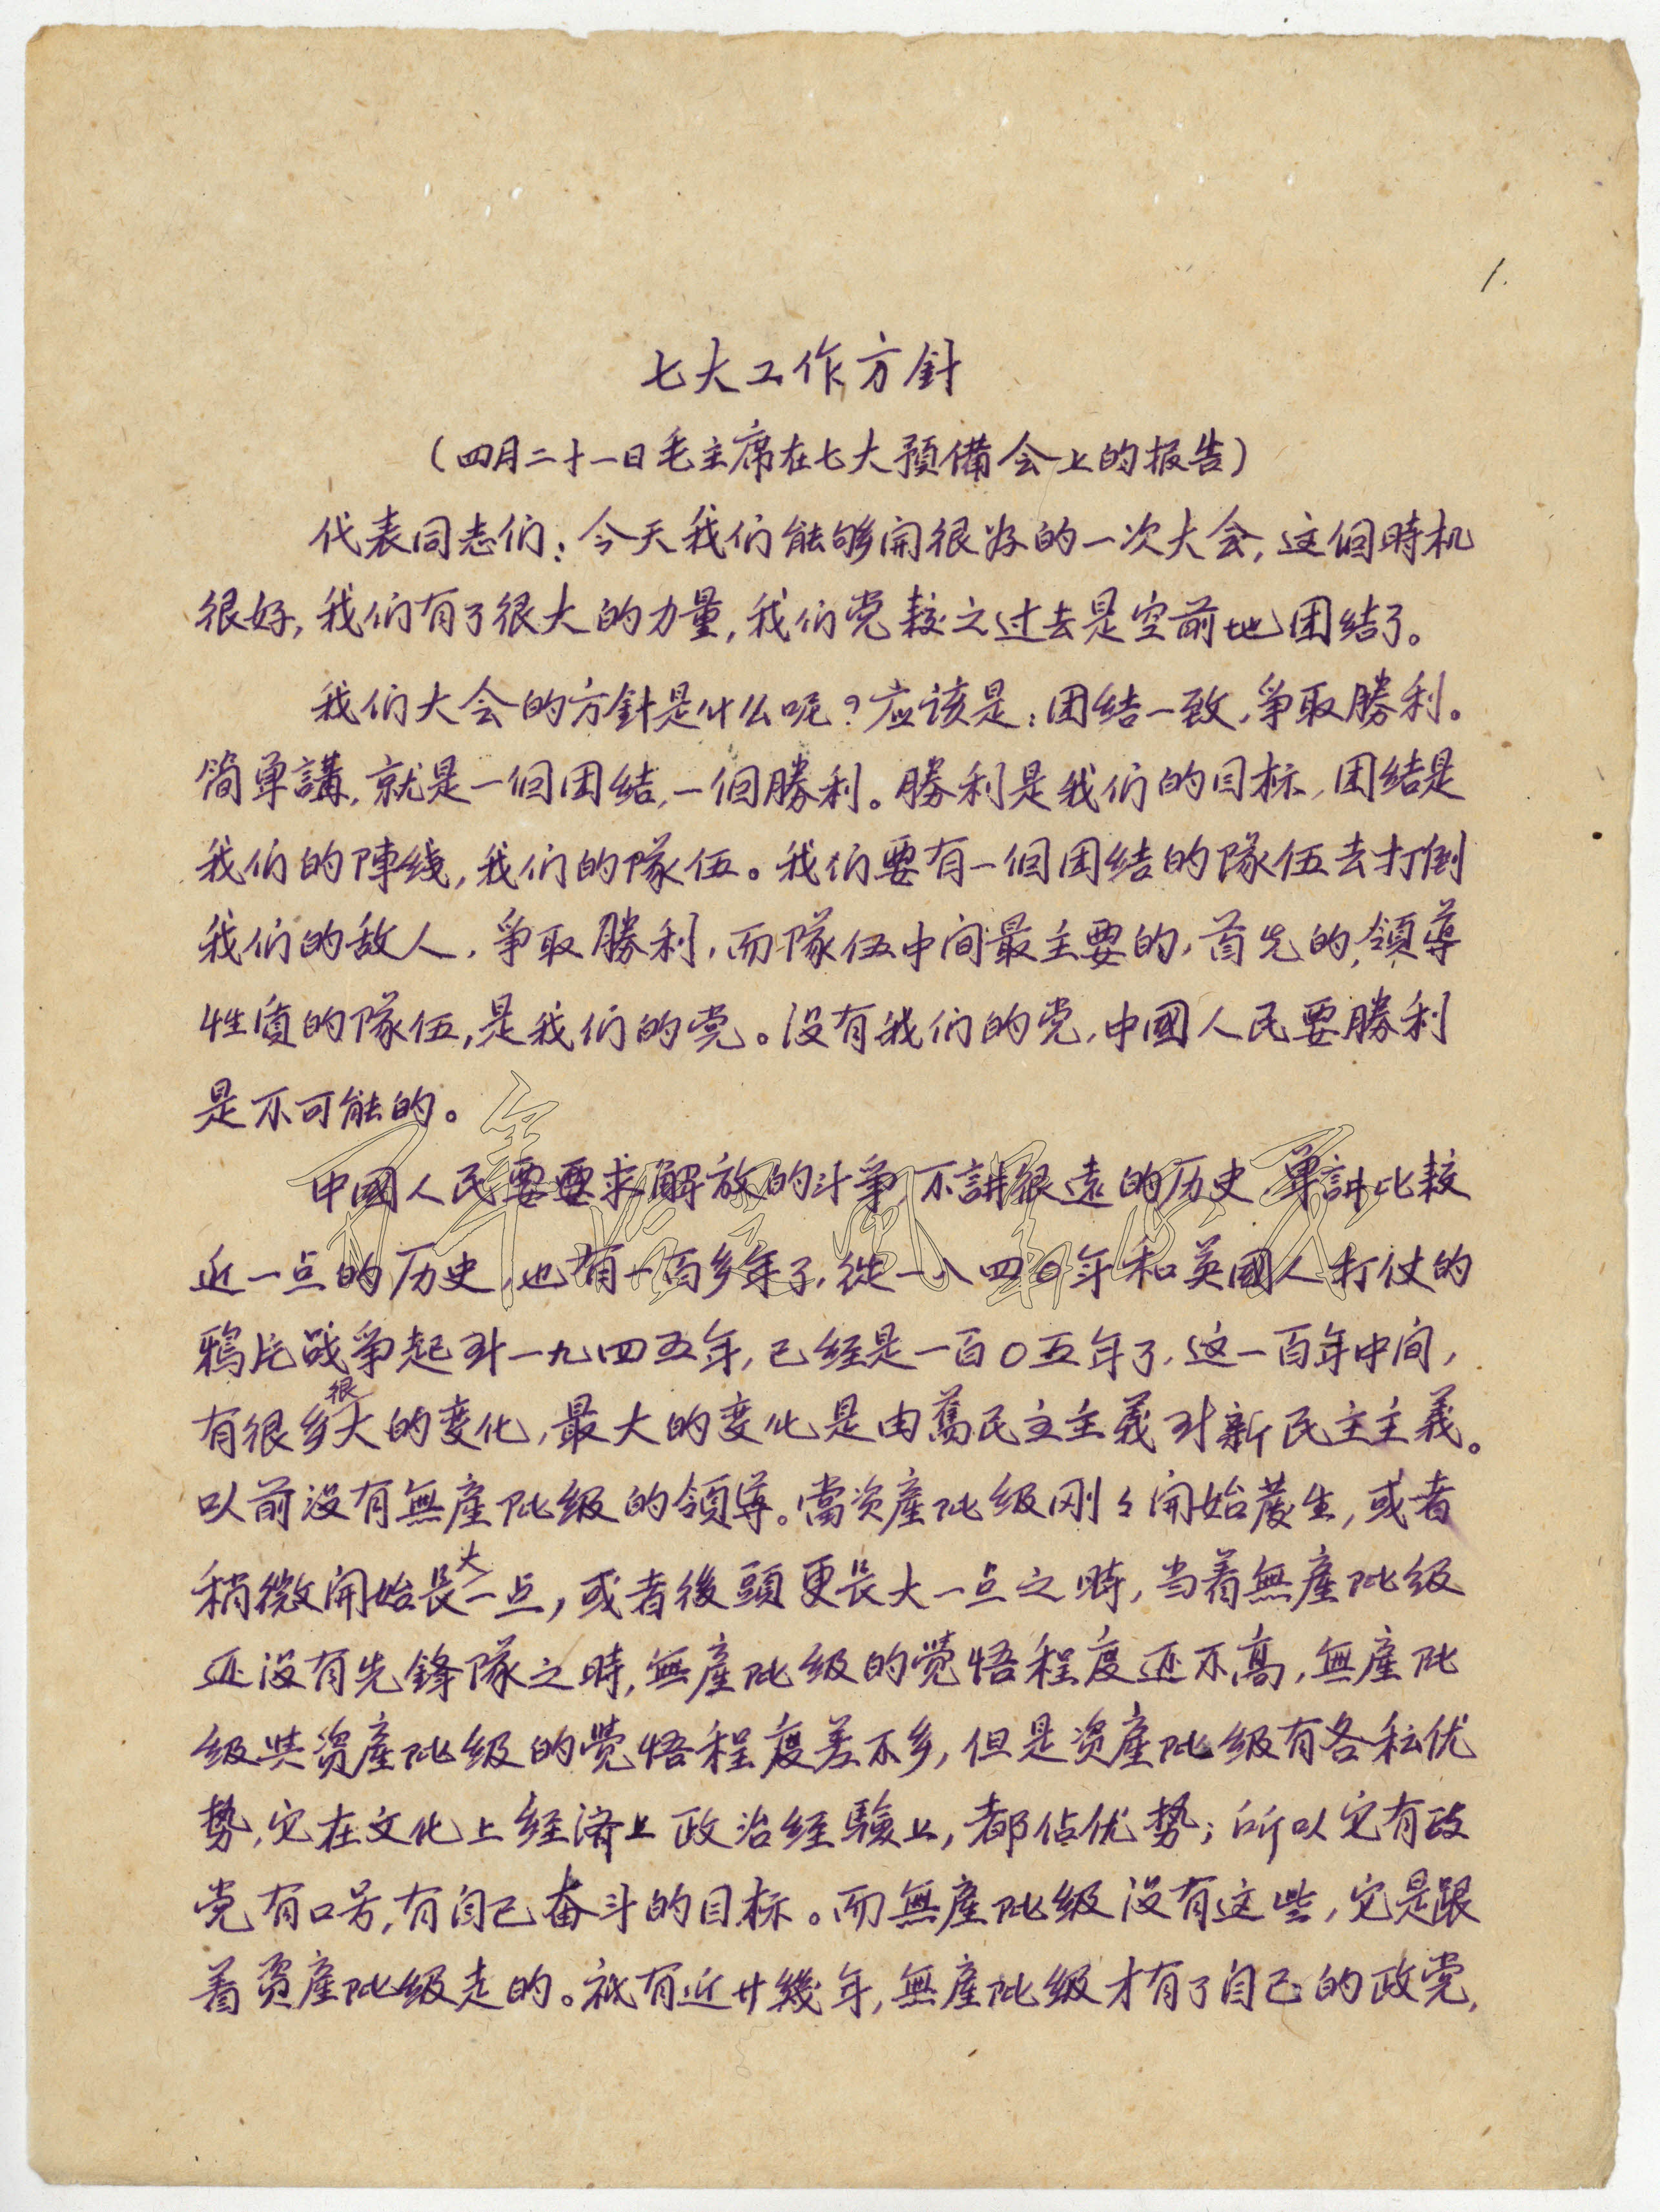 1.
七大工作方針
（四月二十一日毛主席在七大預備会上的报告）
代表同志们：今天我们能够開很好的一次大会，这個時机
很好，我们有了很大的力量，我们党較之过去是空前地团结了。
我们大会的方針是什么呢？应该是：团结一致，爭取勝利。
简單講，就是一個团结，一個勝利。勝利是我们的目标，团结是
我们的陣线，我们的隊伍。我们要有一個团结的隊伍去打倒
我们的敌人，爭取勝利，而隊伍中间最主要的，首先的，領導
性质的隊伍，是我们的党。没有我们的党，中國人民要勝利
是不可能的。
中國人民要要求解放的斗爭不講很遠的历史單講比較
近一点的历史，也有一百多年了，從一八四〇年和英國人打仗的
鴉片战爭起到一九四五年，已经是一百〇五年了，这一百年中间，
有很多很大的变化，最大的变化是由舊民主主義到新民主主義。
以前没有無產阶级的領導。當资產阶级刚々開始發生，或者
稍微開始長大一点，或者後頭更長大一点之時，当着無產阶级
还没有先鋒隊之時，無產阶级的覺悟程度还不高，無產阶
级共资產阶级的覺悟程度差不多，但是资產阶级有各种优
势，它在文化上经济上政治经驗上，都佔优势；所以它有政
党有口号，有自己奋斗的目标。而無產阶级没有这些，它是跟
着资產阶级走的。祇有近廿幾年，無產阶级才有了自己的政党，